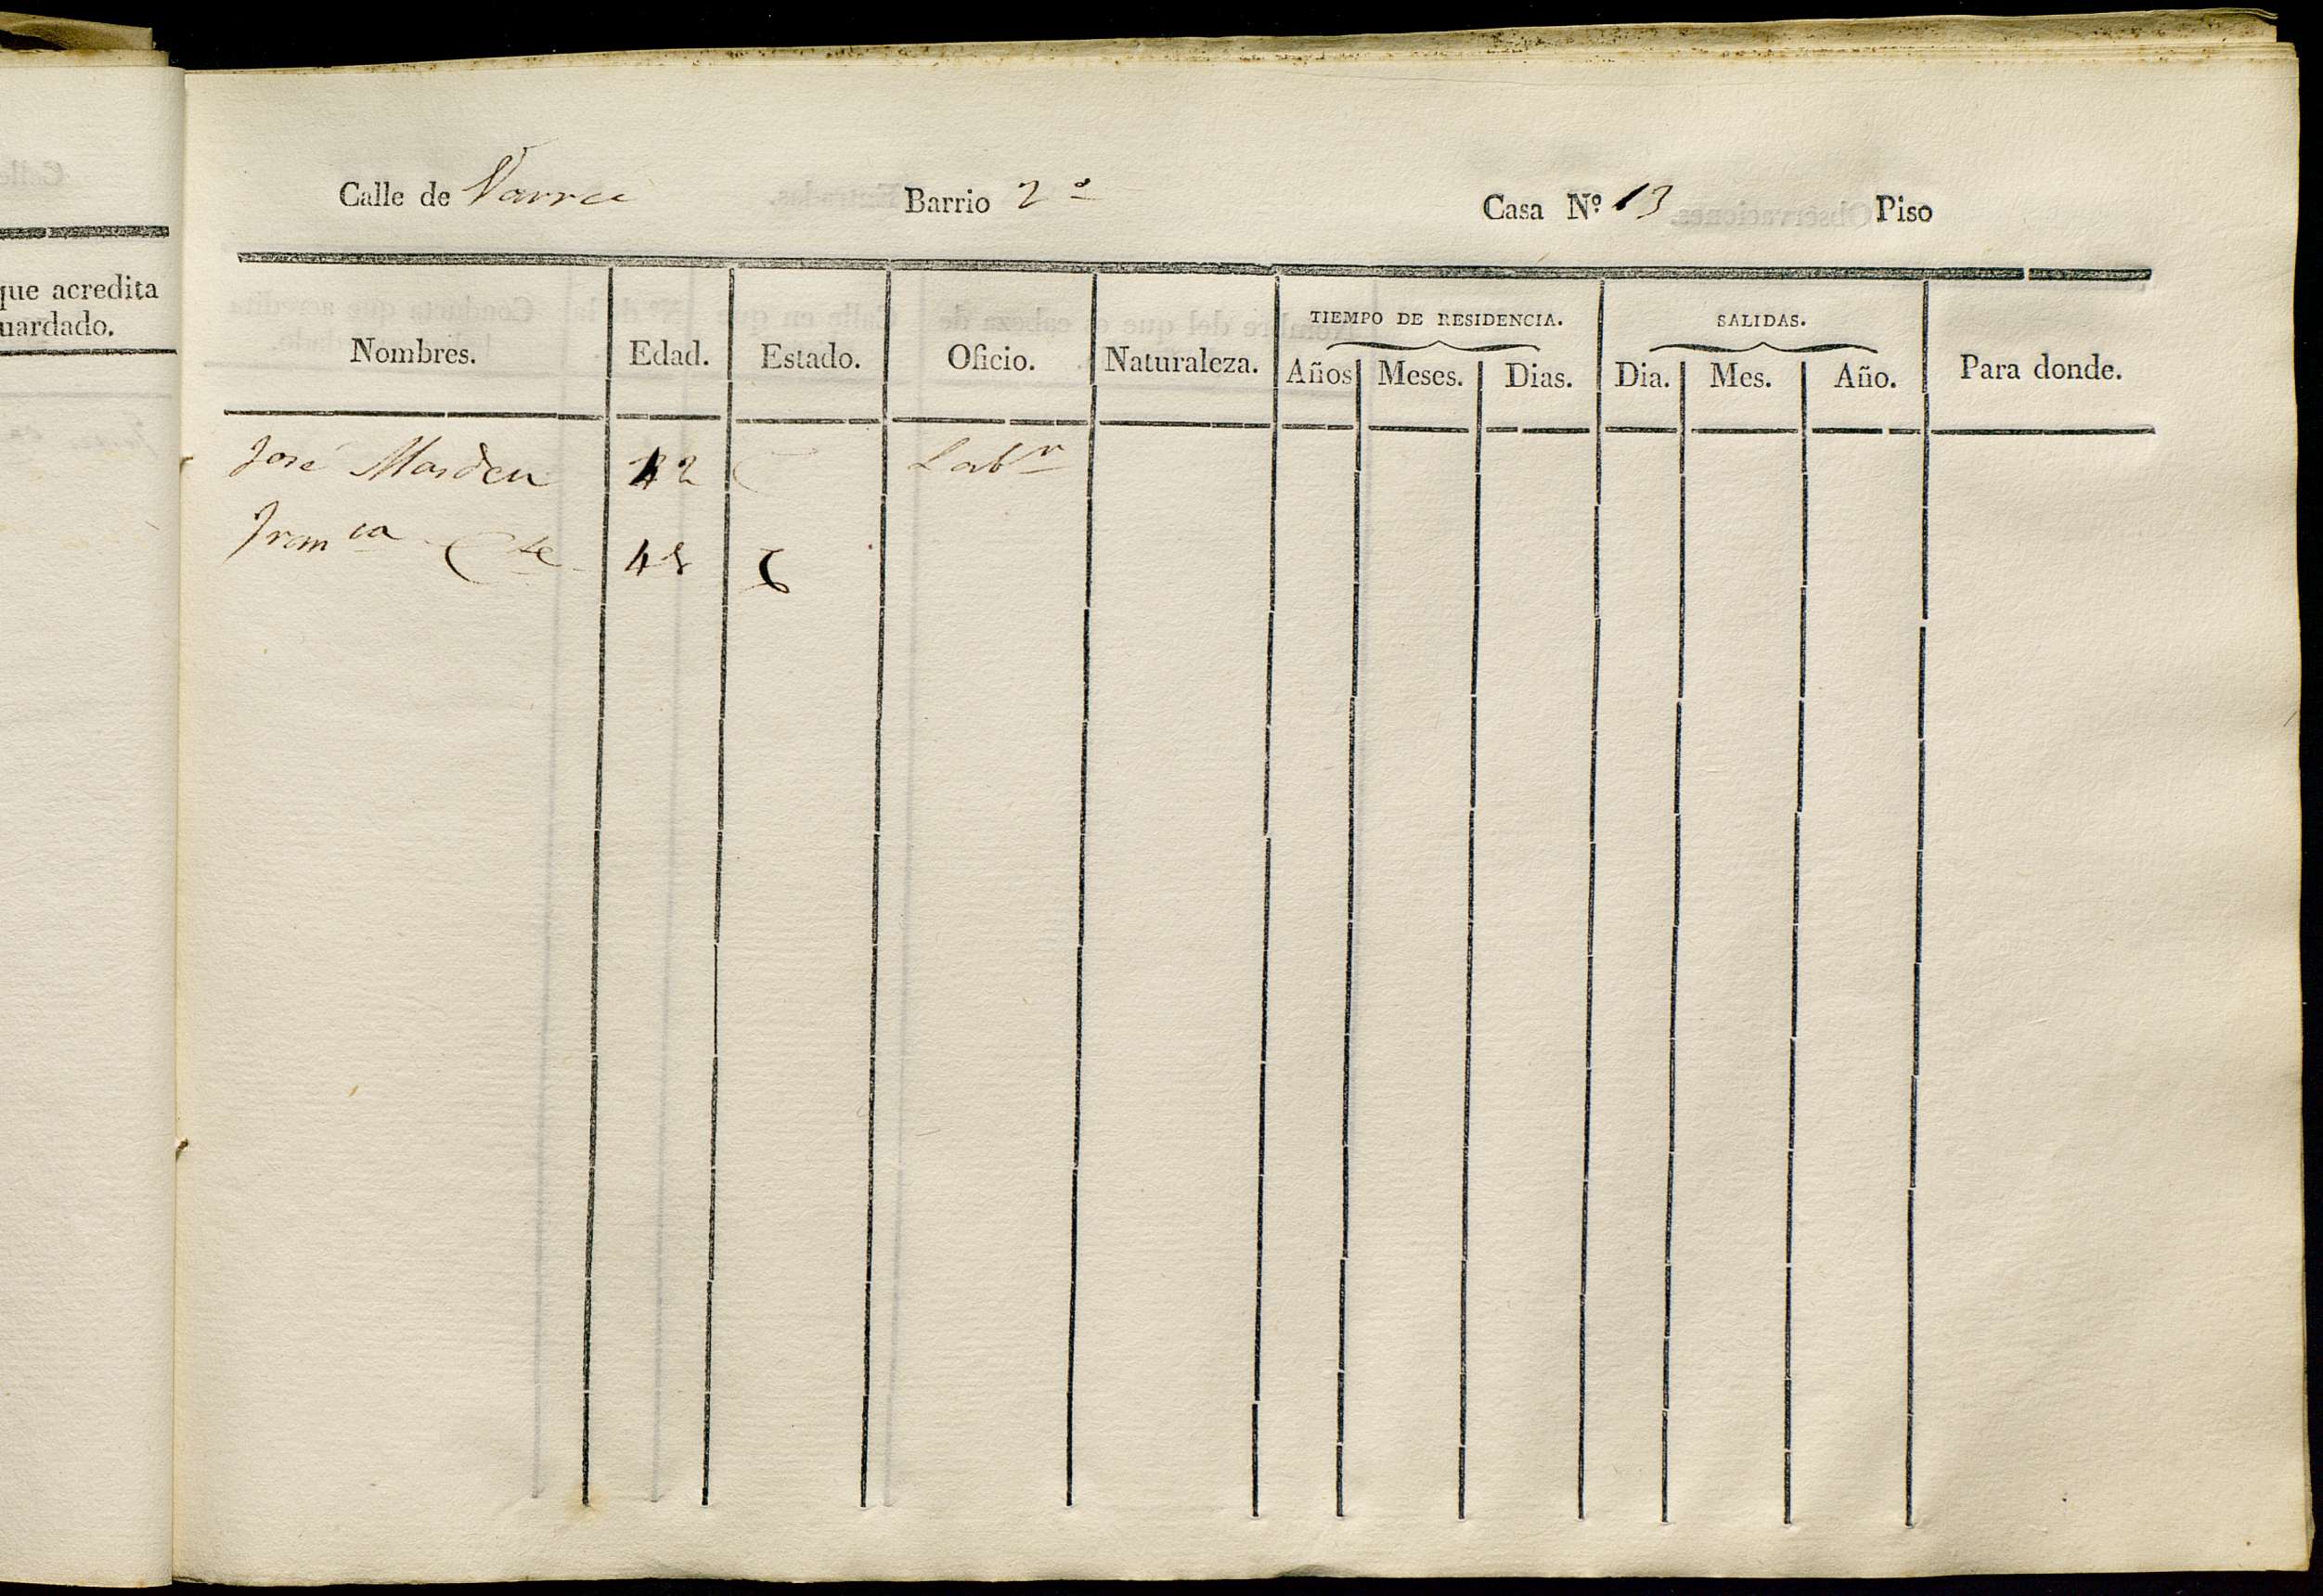 que acredita
uardado.
Calle de Barrio 2º Casa Nº 13 Piso
TIEMPO DE RESIDENCIA. SALIDAS.
Nombres. Edad. Estado. Oficio. Naturaleza. Años Meses. Dias. Dia. Mes. Año. Para donde.
José 42 C Labr
Franca 48 C